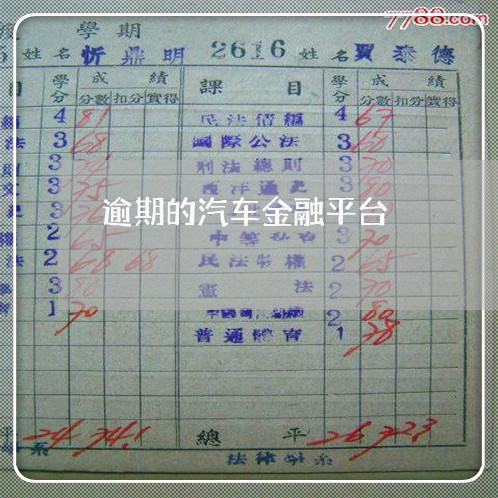 7788.com
學期
姓名 忻鼎明 2616 姓名 賈泰德
目 學分 成績 課目 學分 成績
分數 扣分 實得 分數 扣分 實得
4 81 民法債編 4 67
法 3 68 國際公法 3 60
3 刑法總則 3 70
3 75 西洋通史 3 80
逾期的汽车金融平台
2 65 3 70
法 2 68 68 民法物權 2 65
3 80 憲法 2 70
1 70 2 80
普通體育 1 78
平 24 74.1 總平 26 72.3
系 法律學系